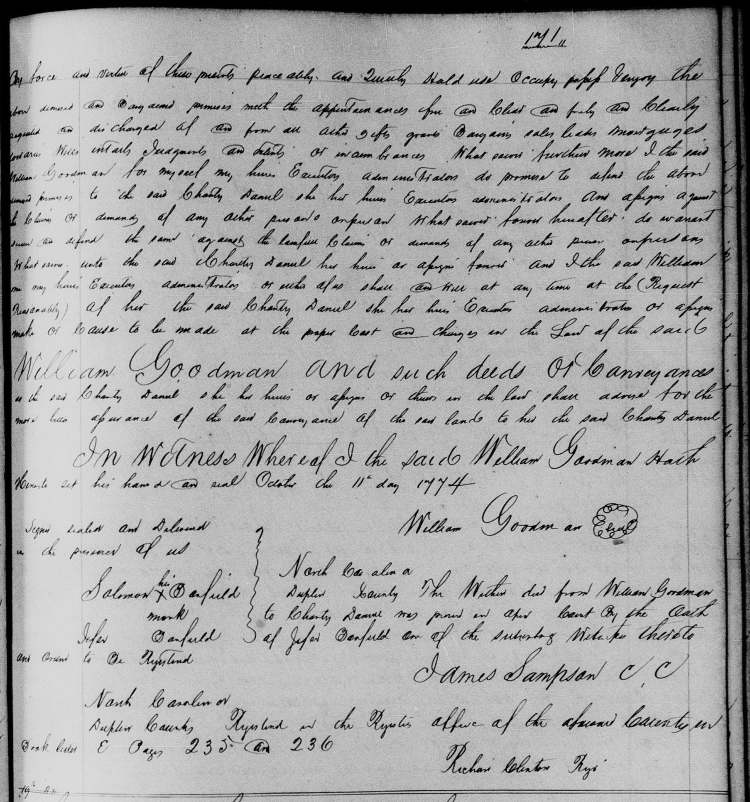 171
By force and virtue of these presents peaceably and Quietly Hold use Occupy possess & enjoy the
above demised and Bargained premises with the appurtainances free and Clear and freely and Clearly
acquited and discharged of and from all other Gifts grants Bargains sales leases mortgages
Dowaries Wills intails Judgments and or incumbrances What sover further more I the said
William Goodman for myself my heirs Executors administrators do promise to defend the above
demised premises to the said Charity Daniel she her heirs Executors administrators And assigns against
the Claims or demands of any other person or persons What sover forever hereafter do warant
secure and defend the same against the lawfull Claims or demands of any other person or persons
What sover unto the said Charity Daniel her heirs or assigns forever And I the said William
me my heirs Executors administrators or either of us shall and will at any time at the (Request
Reasonably) of her the said Charity Daniel she her heirs Executors administrators or assigns
make or Cause to be made at the proper Cost and Charges in the Law of the said
William Goodman and such deeds Or Conveyances
as the said Charity Daniel she her heirs or assigns or theirs in the law shall advise for the
more assurance of the said Conveyance of the said land to her the said Charity Daniel
In Witness Whereof I the said William Goodman Hath
Hereunto set his hand and seal October the 11th day 1774
William Goodman Seal
Signed sealed and Delivered
in the presence of us
Solomon his X Barfield
mark
Jesse Barfield
North Carolina
Duplin County The Within deed from William Goodman
to Charity Daniel was proved in open Court By the Oath
of Jesse Barfield one of the subscribing Witnesses thereto
and Ordered to Be Registerd
James Sampson C C
North Carolina
Duplin County Registerd in the Registers office of the aforesaid County in
Book letter E Pages 235 and 236
Richard Clinton Regr